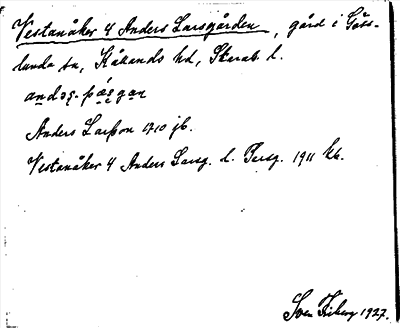 Vestanåker 4 Anders Larsgården, gård i Göss-
lunda sn, Kållands hd, Skarab. l.
Anders Larsson 1710 jb.
Vestanåker 4 Anders Larsg. l. Persg. 1911 kk.
Sven Friberg 1927.